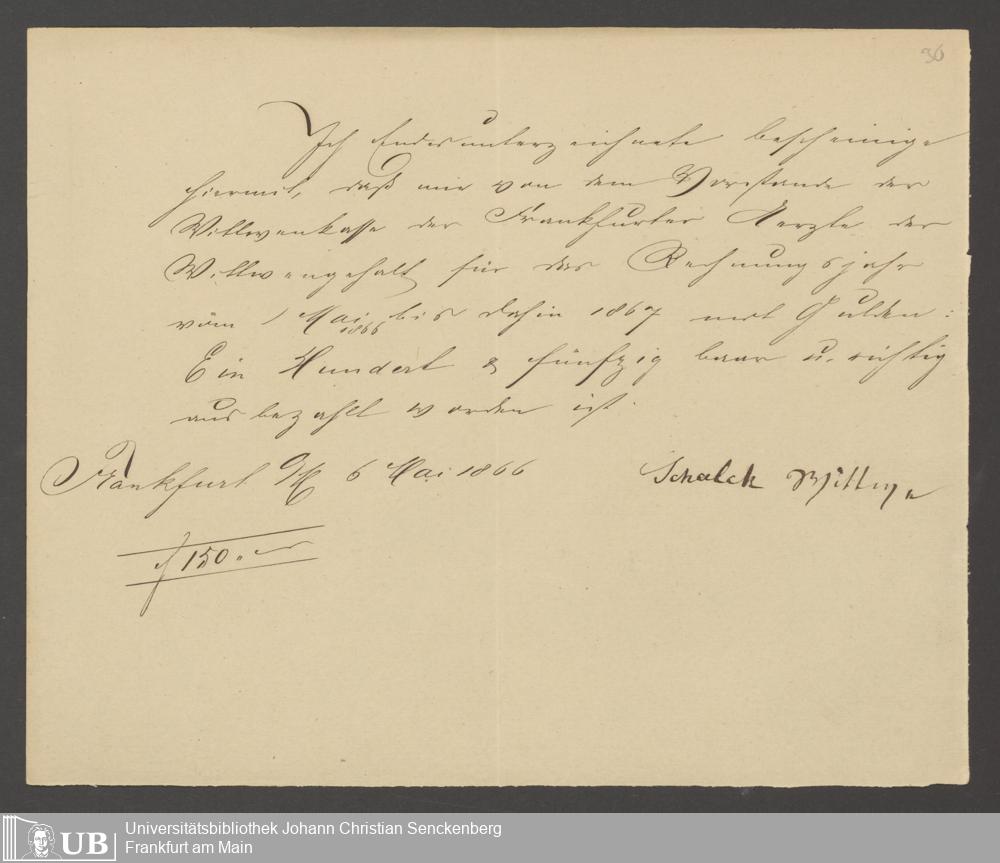 36
Ich Endesunterzeichnete bescheinige
hiermit, daß mir von dem Vorstande der
Wittwenkasse der Frankfurter Aerzte der
Wittwengehalt für das Rechnungsjahr
vom 1 Mai 1866 bis dahin 1867 mit Gulden:
Ein Hundert & fünfzig baar u. richtig
ausbezahlt worden ist.
Frankfurt a/M 6 Mai 1866 Schalck Wittwe
f 150.
UB Universitätsbibliothek Johann Christian Senckenberg
Frankfurt am Main